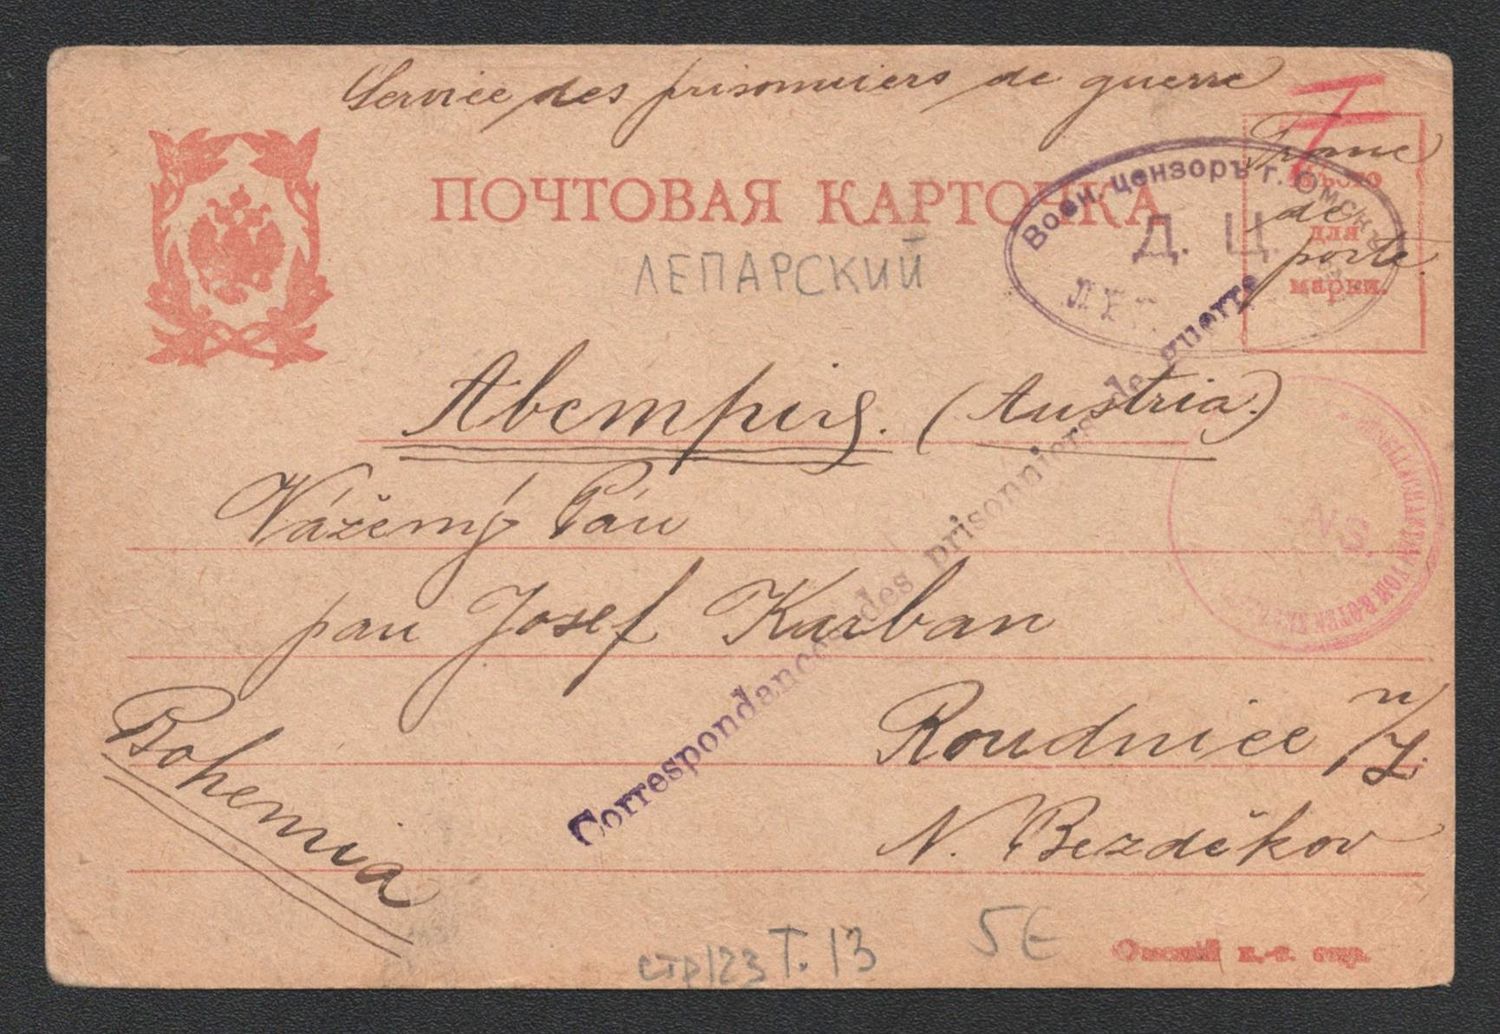 Service des prisonniers de guerre
Franc
de
porte
Мѣсто
для
марки.
ПОЧТОВАЯ КАРТОЧКА
Воен. цензоръ г. Омскъ
Д. Ц.
ЛЕПАРСКИЙ
Correspondance des prisonniers de guerre
(Austria.)
N.S.
VOM ROTEN
Vážený Pán
pan Josef Karban
Bohemia
Roudnice n/L.
N. Bezděkov
стр 123 Т. 13
5E
Омскій к.-т. отд.